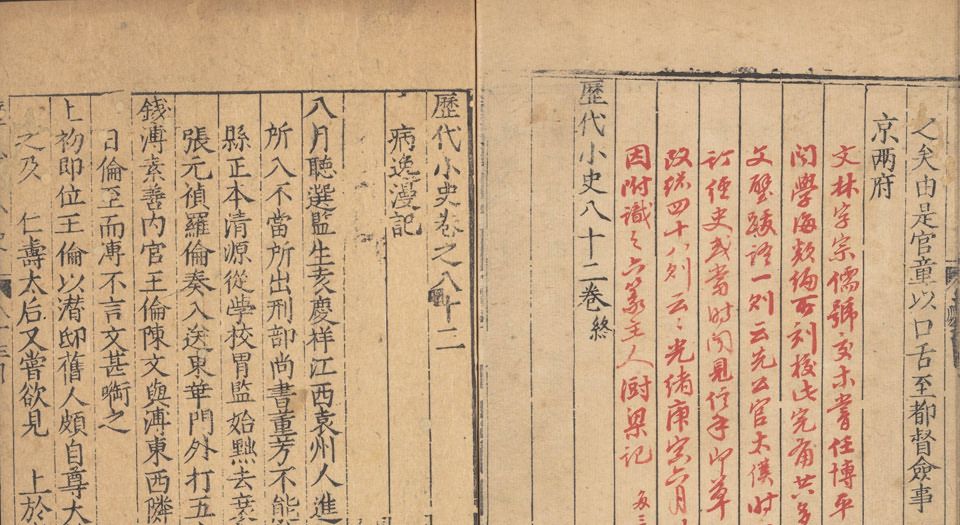 之矣由是官童以口舌至都督僉事
京兩府
文林字宗儒號交木嘗任博平
閱學海類編所刻較此完備共多
文璧跋語一則云先公官太僕時
訂經史或當時聞見信手即草
改總四十八則云云光緒庚寅六月
因附識之六篆主人澍梁記
歷代小史八十二卷終
歷代小史卷之八十二
病逸漫記
八月聽選監生亥慶祥江西袁州人進
所入不當所出刑部尚書董芳不能
縣正本清源從學校胄監始黜去
張元禎羅倫奏入送東華門外打五
錢溥素善內官王倫陳文與溥東西隣
日倫至而溥不言文甚啣之
上初即位王倫以潜邸舊人頗自尊大
之及 仁壽太后又嘗欲見 上於